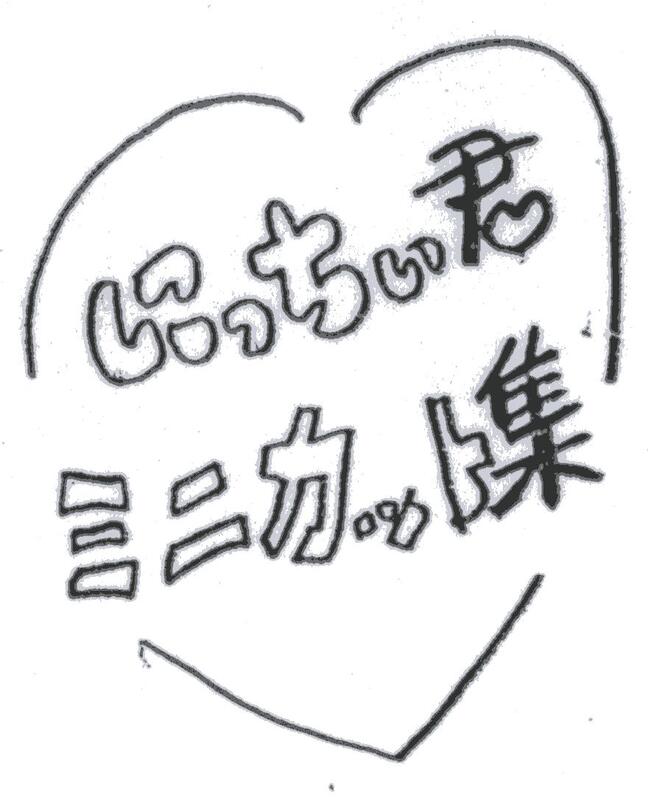 にっちぃ君
ミニカット集